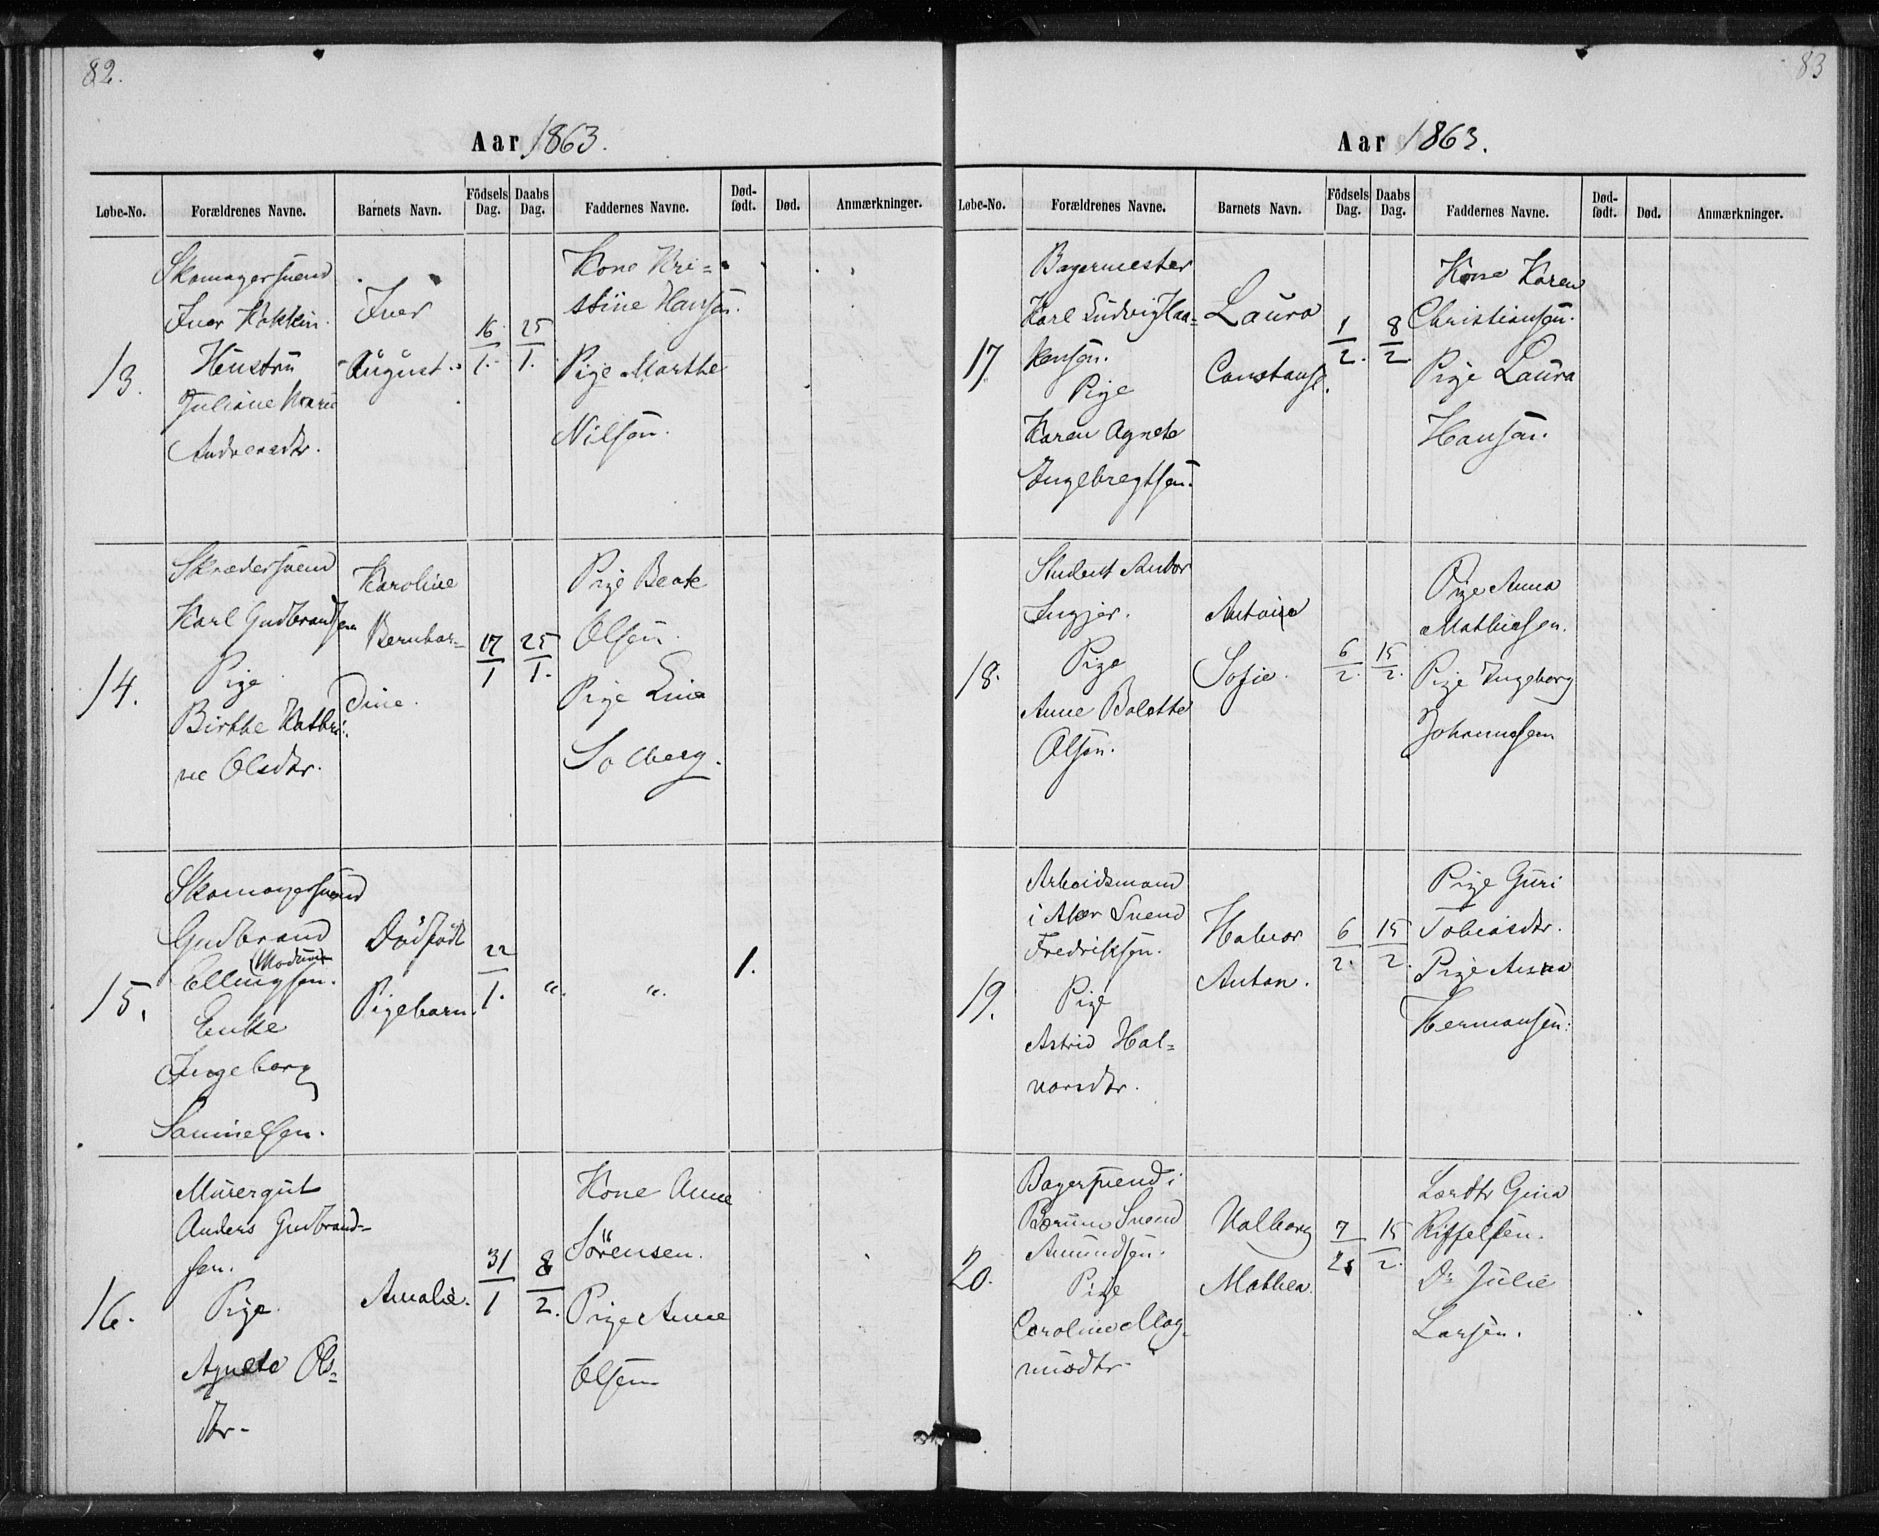 82.
Aar 1863.
Løbe-No. Forældrenes Navne. Barnets Navn. Födsels Dag. Daabs Dag. Faddernes Navne. Død-født. Død. Anmærkninger.
13.
Skomagersvend
Iver Kokkin.
Hustru
Juliane Marie
Andreasdtr.
Iver
August.
16/1.
25/1.
Kone Kri-
stine Hansen.
Pige Marthe
Nilsen.
14.
Skrædersvend
Karl Gudbrandsen
Pige
Birthe Kathri-
ne Olsdtr.
Karoline
Bernhar-
dine.
17/1
25/1.
Pige Beate
Olsen.
Pige Lina
Solberg.
15.
Skomagersvend
Gudbrand
(Modum)
Ellingsen.
Enke
Ingeborg
Samuelsen.
Dödfödt
Pigebarn.
22/1.
"
"
1.
16.
Murergut
Anders Gudbrand-
sen.
Pige.
Agnete Ols-
dtr.
Amalie.
31/1
8/2.
Kone Anne
Sörensen.
Pige Anne
Olsen
83
Aar 1863.
Løbe-No. Forældrenes Navne. Barnets Navn. Födsels Dag. Daabs Dag. Faddernes Navne. Død-født. Død. Anmærkninger.
17.
Bagermester
Karl Ludvig Haa-
kensen.
Pige
Karen Agnete
Ingebregtsen.
Laura
Constanse.
1/2.
8/2.
Kone Karen
Christiansen.
Pige Laura
Hansen.
18.
Student
Pige
Anne Bolette
Olsen.
Sofie.
6/2.
15/2.
Pige Anna
Mathiesen.
Pige Ingeborg
Johannesen
19.
Arbeidsmand
i Aker Svend
Fredriksen.
Pige
Astrid Hal-
vorsdtr.
Halvor
Anton.
6/2.
15/2.
Pige Guri
Tobiasdtr.
Pige Anna
Hermansen.
20.
Bagersvend i
Bærum Svend
Amundsen.
Pige
Caroline Mag-
nusdtr.
Valborg
Mathea.
7/2.
15/2.
Gina
Do Julie
Larsen.